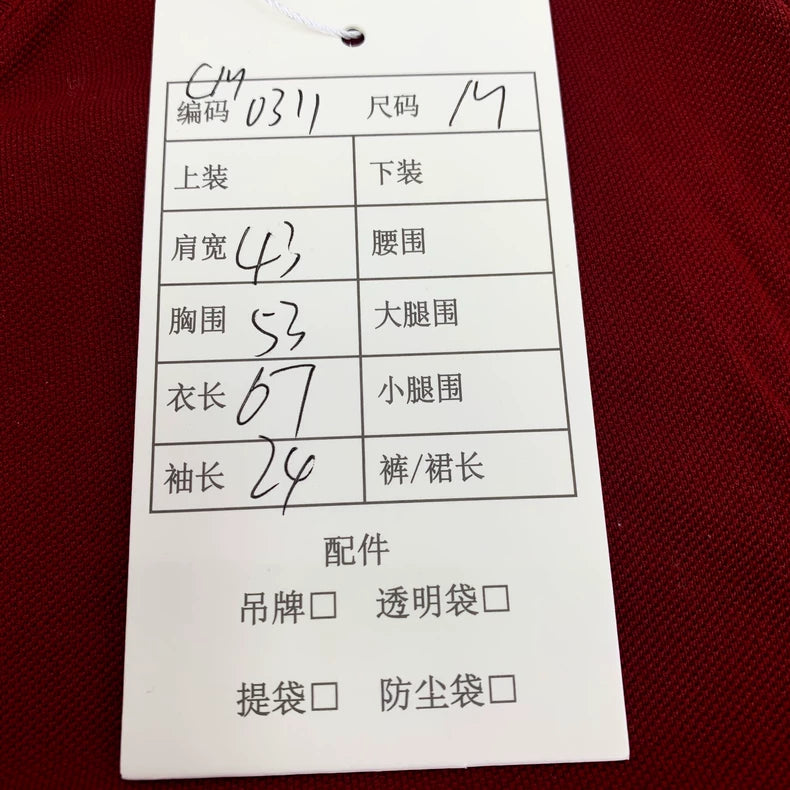 CM
编码 0311 尺码 M
上装 下装
肩宽 43 腰围
胸围 53 大腿围
衣长 67 小腿围
袖长 24 裤/裙长
配件
吊牌□ 透明袋□
提袋□ 防尘袋□